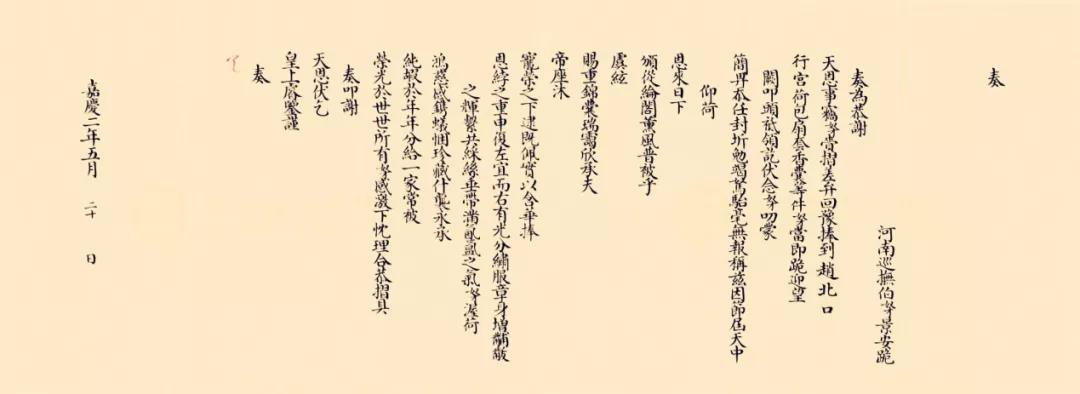 奏
河南巡撫伯奴才景安跪
奏為恭謝
天恩事竊奴才賫摺差弁回豫捧到趙北口
行宮荷包扇套香囊等件奴才當即跪迎望
闕叩頭祗領訖伏念奴才叨蒙
簡畀忝任封圻勉竭駑駘毫無報稱茲因節屆天中
仰荷
恩來日下
頒從綸閣薰風普被乎
虞絃
賜重錦囊瑞靄欣承夫
帝座沐
寵榮之下逮既佩實以含華捧
恩綍之重申復左宜而右有光分繡服章身增黼黻
之輝繫共綵絲垂帶滿氤氳之氣奴才渥荷
鴻慈感鐫蟻悃珍藏什襲永承
純嘏於年年分給一家常被
榮光於世世所有奴才感激下忱理合恭摺具
奏叩謝
天恩伏乞
皇上睿鑒謹
奏
嘉慶二年五月 二十 日